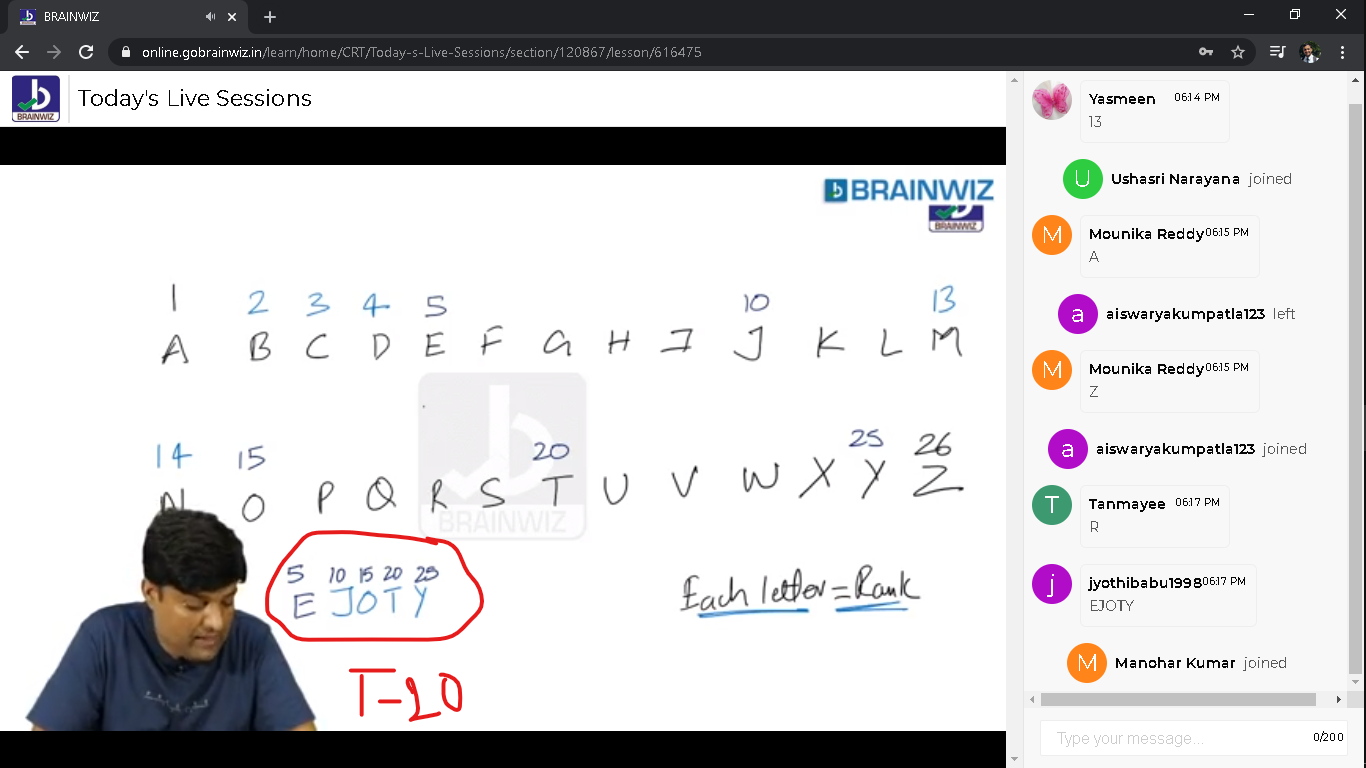 BRAINWIZ
online.gobrainwiz.in/learn/home/CRT/Today-s-Live-Sessions/section/120867/lesson/616475
BRAINWIZ
Today's Live Sessions
BRAINWIZ
BRAINWIZ
1 2 3 4 5 10 13
A B C D E F G H I J K L M
14 15 20 25 26
N O P Q R S T U V W X Y Z
BRAINWIZ
5 10 15 20 25
E J O T Y
Each letter = Rank
T-20
Yasmeen 06:14 PM
13
U Ushasri Narayana joined
M Mounika Reddy 06:15 PM
A
a aiswaryakumpatla123 left
M Mounika Reddy 06:15 PM
Z
a aiswaryakumpatla123 joined
T Tanmayee 06:17 PM
R
j jyothibabu1998 06:17 PM
EJOTY
M Manohar Kumar joined
Type your message... 0/200